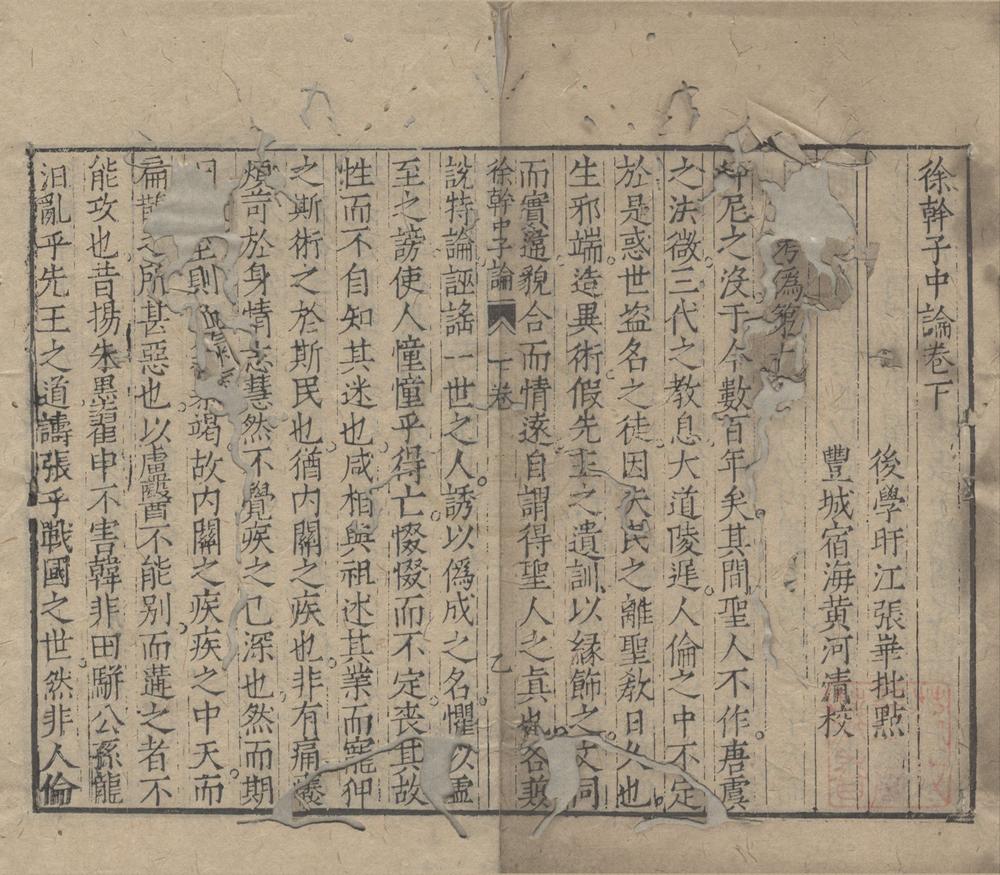 徐幹子中論卷下
後學盱江張畢批點
豐城宿海黄河清校
考爲第十
仲尼之沒于今數百年矣其間聖人不作唐虞
之法微三代之教息大道陵遲人倫之中不定
於是惑世盜名之徒因夫民之離聖教日久也
生邪端造異術假先王之遺訓以緣飾之文同
而實違貌合而情遠自謂得聖人之眞也各兼
徐幹中子論
下卷
乙
說特論誣謠一世之人誘以僞成之名懼以虛
至之謗使人憧憧乎得亡惙惙而不定丧其故
性而不自知其迷也咸相與祖述其業而寵狎
之斯術之於斯民也猶内關之疾也非有痛癢
煩苛於身情志慧然不覺疾之已深也然而期
日至則血氣暴竭故内關之疾疾之中夭而
扁鵲之所甚惡也以盧醫不能别而遘之者不
能攻也昔揚朱墨翟申不害韓非田駢公孫龍
汩亂乎先王之道譸張乎戰國之世然非人倫